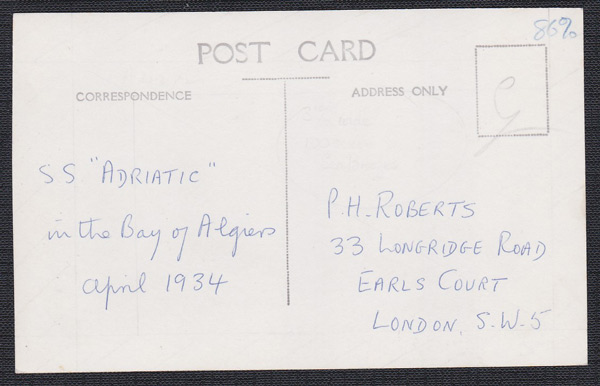 86%
POST CARD
CORRESPONDENCE
ADDRESS ONLY
SS "ADRIATIC"
in the Bay of Algiers
April 1934
P.H. ROBERTS
33 LONGRIDGE ROAD
EARLS COURT
LONDON. S.W.5